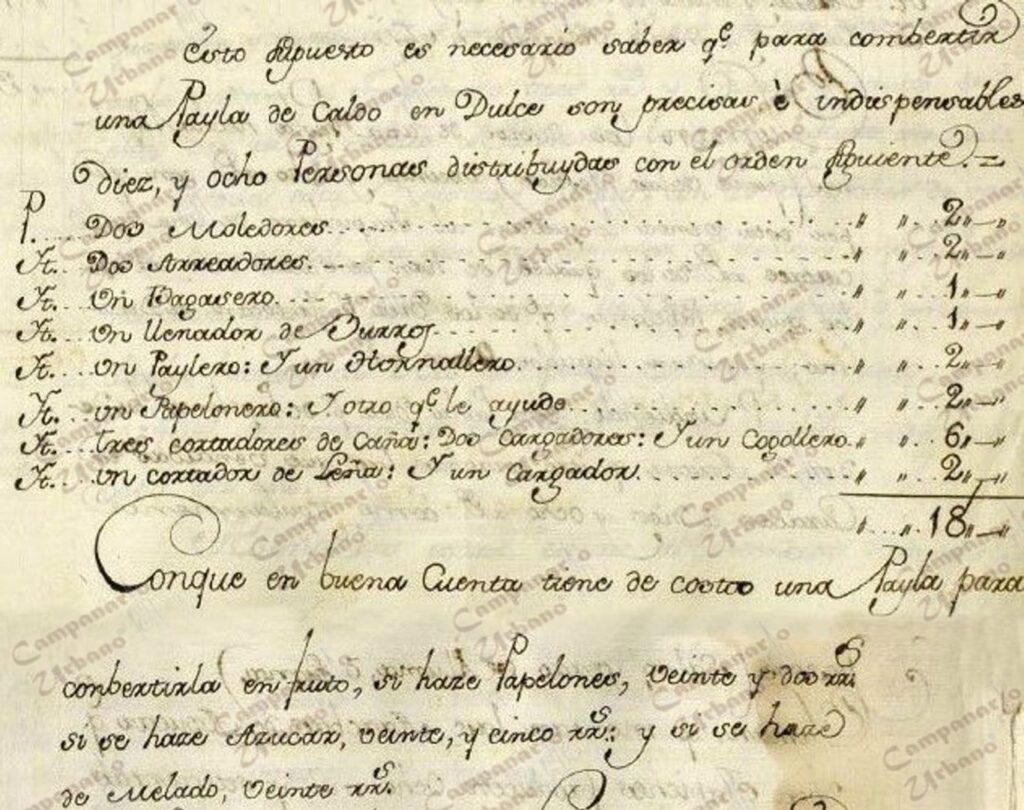 Esto supuesto es necesario saber qe para combertir
una Payla de Caldo en Dulce son precisas è indispensables
Diez, y ocho Personas distribuydas con el orden siguiente. =
P. Dos Moledores. " " 2 "
It. Dos Arreadores. " " 2 "
It. Un Bagasero. " " 1 "
It. Un llenador de Burros. " " 1 "
It. Un Paylero: Y un Hornallero. " " 2 "
It. Un Papelonero: Y otro qe le ayude. " " 2 "
It. Tres cortadores de Caña: Dos Cargadores: Y un Cogollero. " " 6 "
It. Un cortador de Leña: Y un Cargador. " " 2 "
" " 18 "
Conque en buena Cuenta tiene de costo una Payla para
conbertirla en fruto, si haze Papelones, veinte y dos rrs.
si se haze Azucar, veinte, y cinco rrs.: y si se haze
de Melado, veinte rrs.
Campanario Urbano